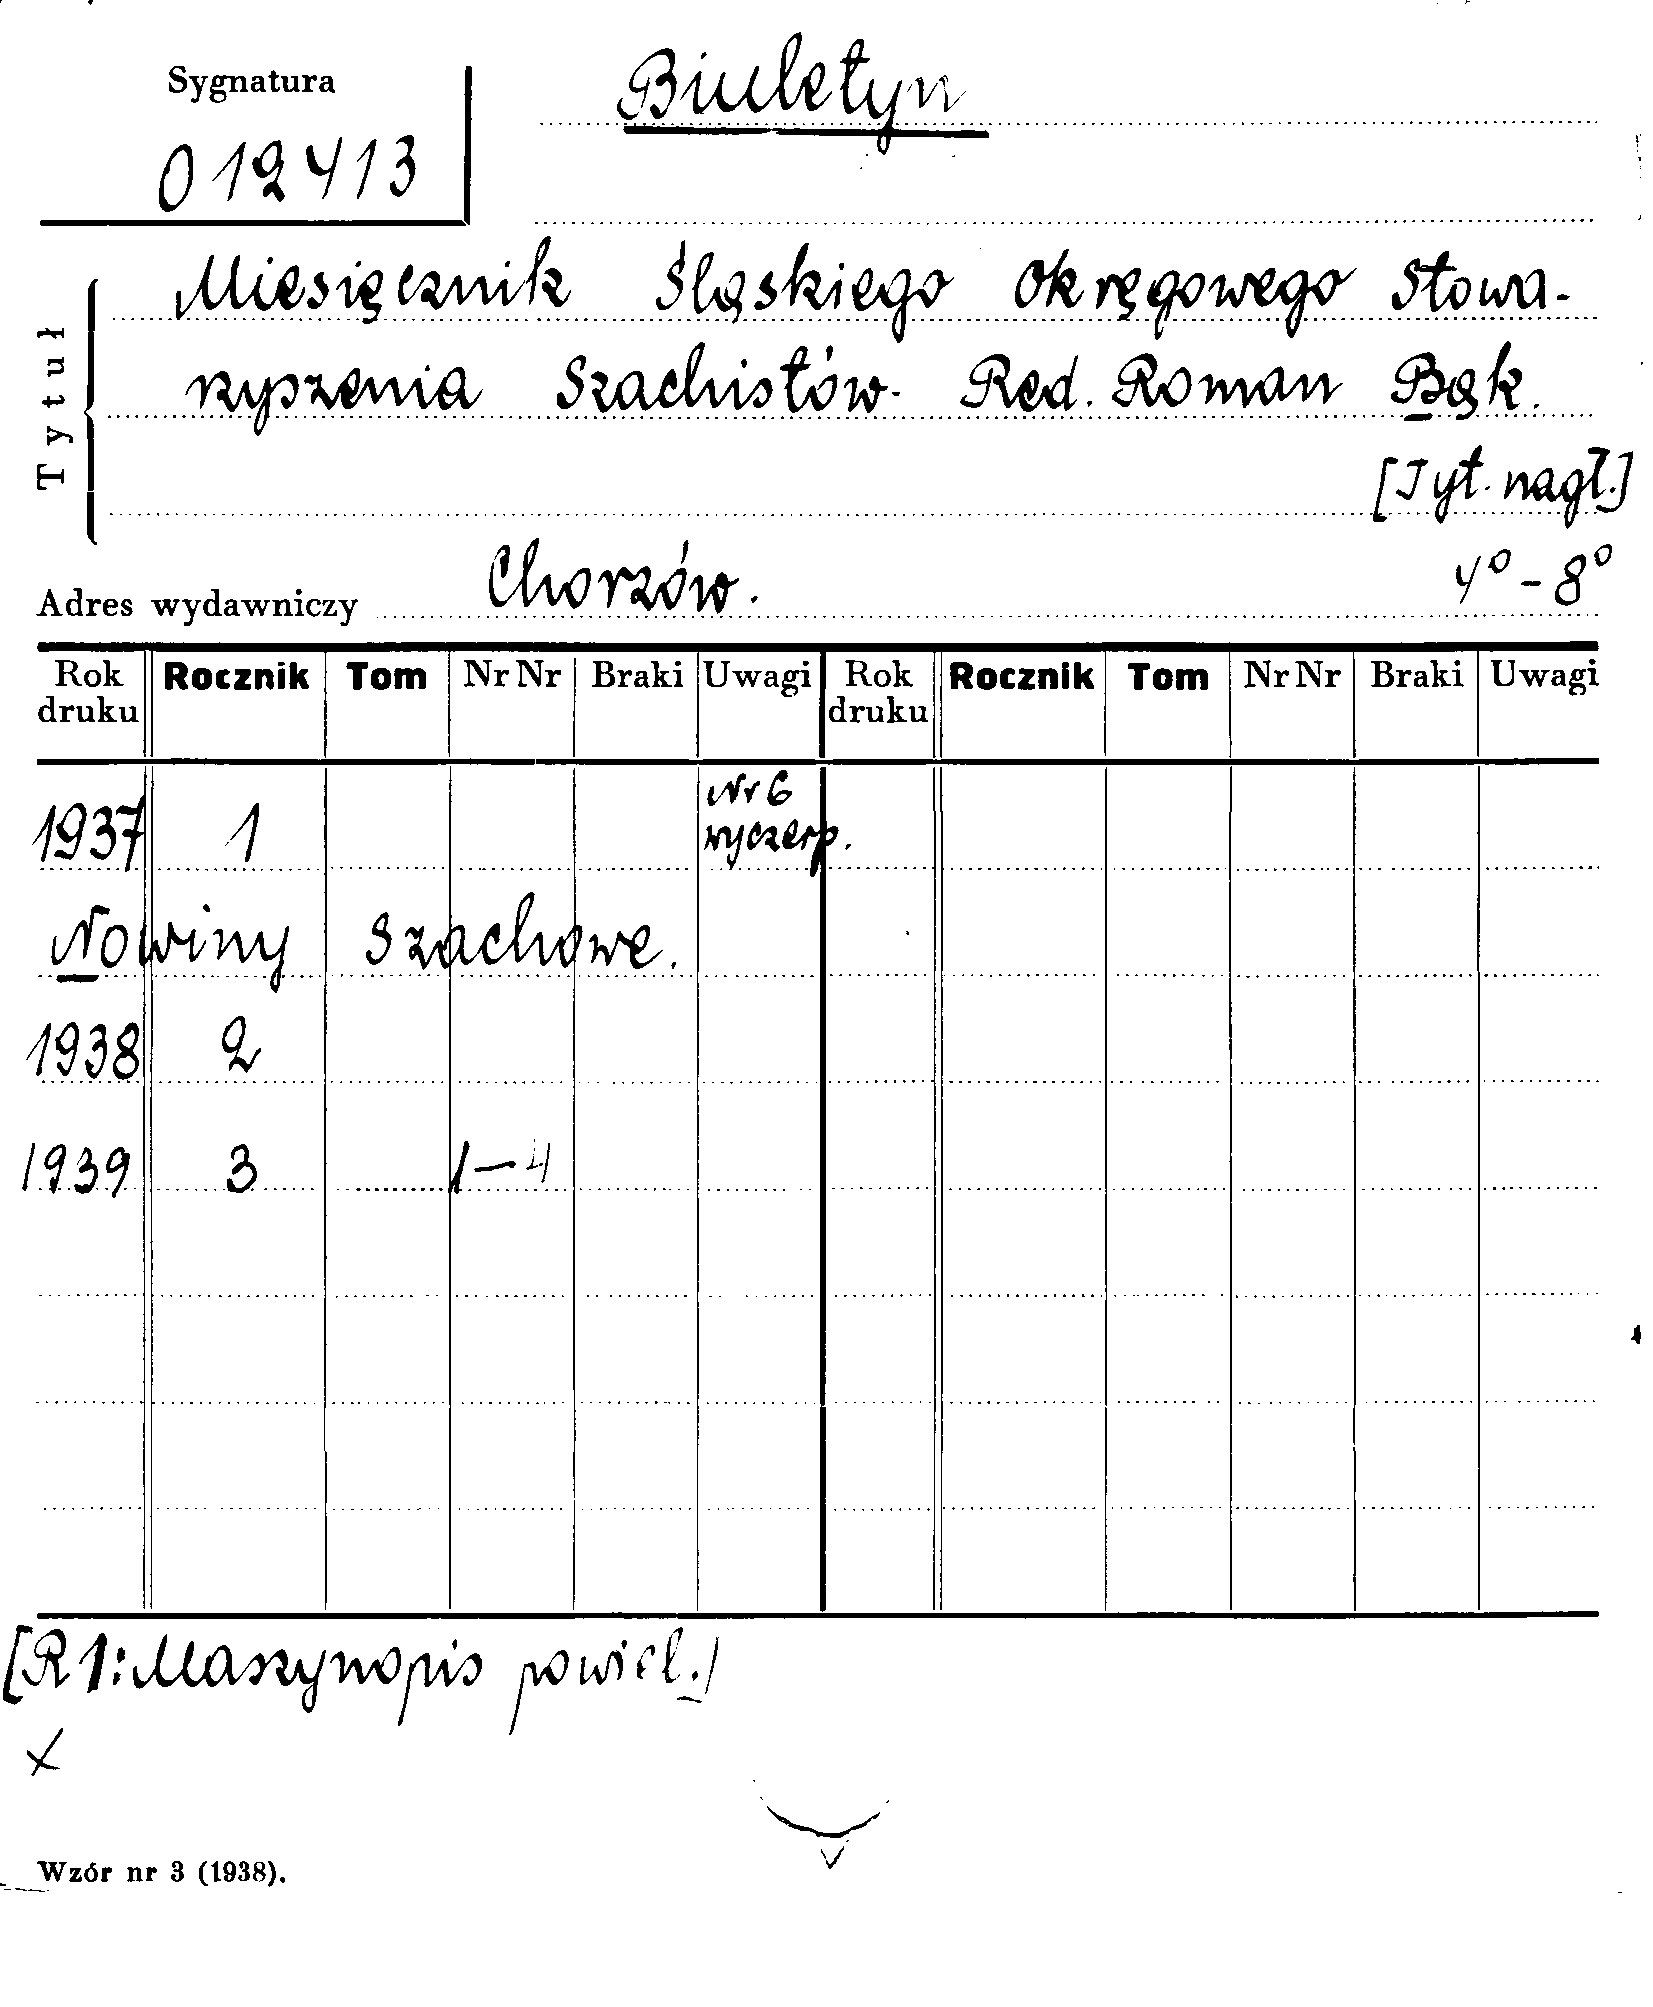 Sygnatura
012413
Biuletyn
Tytuł
Miesięcznik Śląskiego Okręgowego Stowa-
rzyszenia Szachistów. Red. Roman Bąk.
[Tyt. nagł.]
4° - 8°
Adres wydawniczy Chorzów.
Rok druku Rocznik Tom Nr Nr Braki Uwagi Rok druku Rocznik Tom Nr Nr Braki Uwagi
1937 1 Nr 6 wyczerp.
Nowiny Szachowe.
1938 2
1939 3 1-4
[R 1: Maszynopis powiel.]
x
Wzór nr 3 (1938).